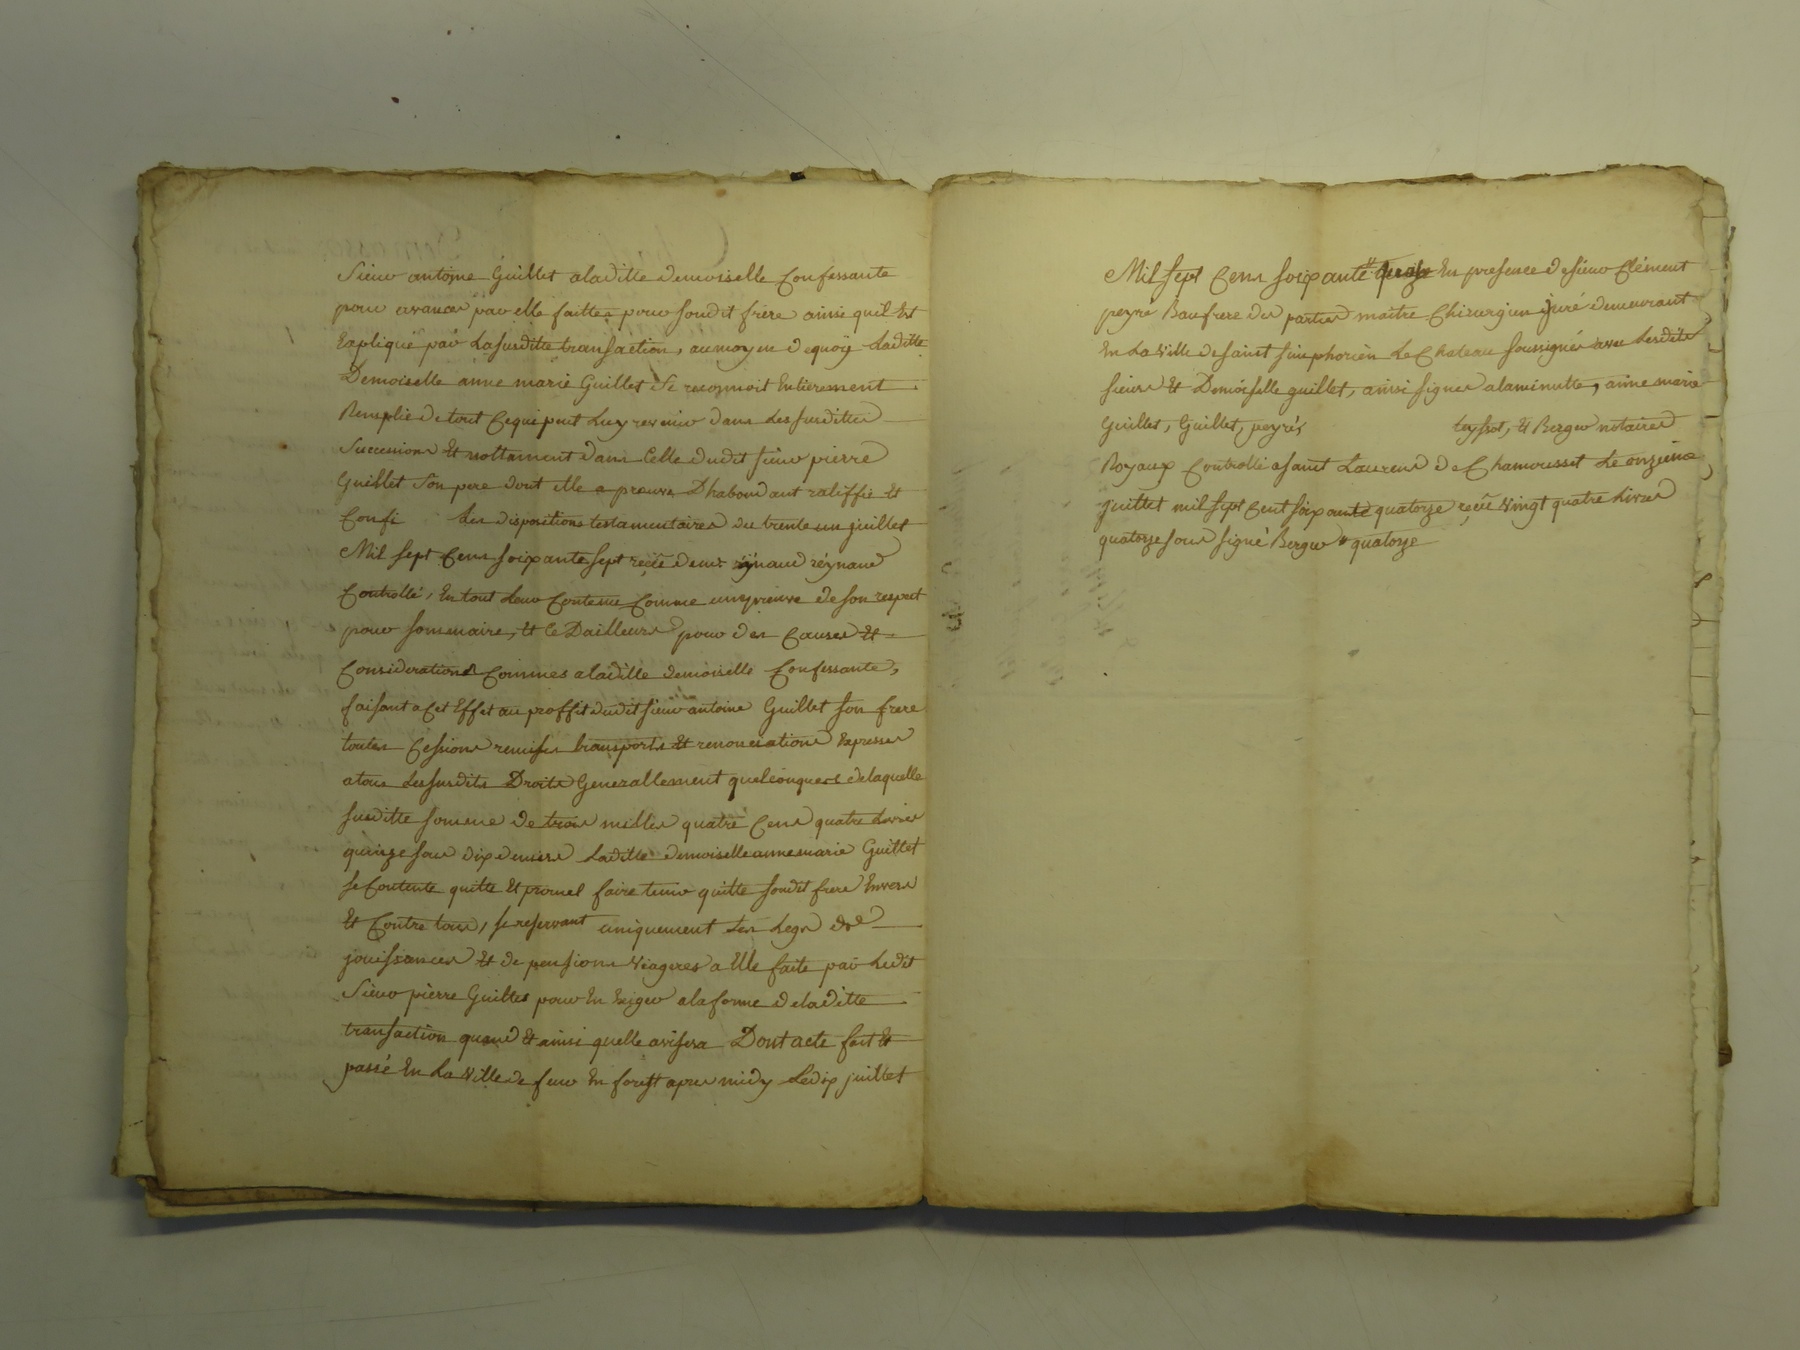 Sieur antoine Guillet aladitte demoiselle Confessante
pour avances par elle faittes pour Sondit frère ainsi quil Est
Expliqué par Lasusditte transaction, aumoyen dequoÿ Laditte
Demoiselle anne marie Guillet Se reconnoit Entierement
Remplie detout Cequi peut Luy revenir dans Les susdittes
Successions Et nottament dans Celle dudit sieur pierre
Guillet Son pere dont Elle a preuve Dhabondant ratiffie Et
Confi les dispositions testamentaires du trente un juillet
Mil sept Cens soixante sept reçüe de me réynaud
Controllé, En tout Leur Contenu Comme une preuve de son respect
pour semenaire, Et ce Dailleurs pour des Causes Et
Considerations Connues aladitte demoiselle Confessante,
faisant a Cet Effet au proffit dudit sieur antoine Guillet son frere
toutes Cessions remises transports Et renonciations Expresses
a tous Les susdits Droits Generallement quelconques delaquelle
susditte somme de trois milles quatre Cens quatre Livres
quinze sous dix deniers Laditte demoiselle anne marie Guillet
se Contente quitte Et promet faire tenir quitte sondit frere Envers
Et Contre tous, se reservant uniquement Les Legs de
jouissances Et de pensions Viageres a Elle faite par Ledit
Sieur pierre Guillet pour En Exiger alaforme deladitte
transaction quand Et ainsi quelle avisera Dont acte fait Et
passé En La Ville de feur En forest apres midy Ledix juillet
Mil sept Cens soixante En presence de sieur Clément
peyré Baufrere des parties maitre Chirurgien juré demeurant
En La Ville de saint simphorien Le Chateau soussignés avec Lesdits
sieurs Et Demoiselle guillet, ainsi signés alaminutte, anne marie
Guillet, Guillet, peyré, teyssot, Et Berger notaires
Royaux Controllé a saint Laurens de Chamousset Le onzieme
juillet mil sept cent soixante quatorze reçu Vingt quatre Livres
quatorze sous signé Berger quatorze